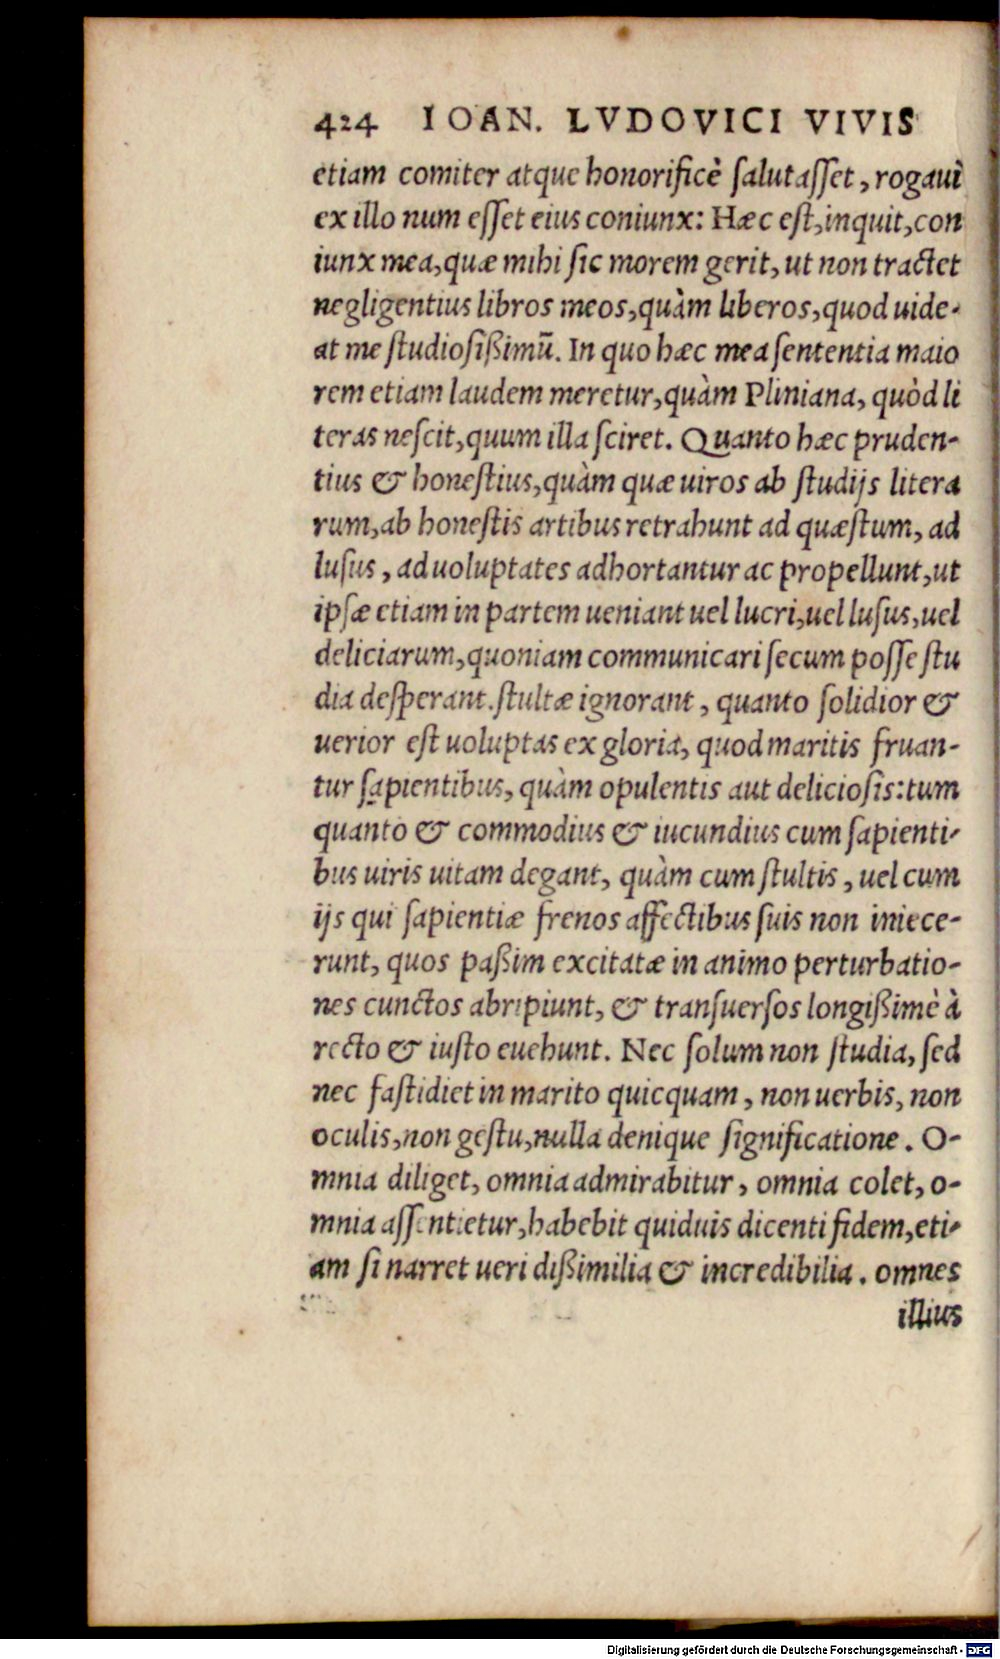 424 IOAN. LVDOVICI VIVIS
etiam comiter atque honorificè ſalutaſſet, rogauì
ex illo num eſſet eius coniunx: Hæc eſt, inquit, con
iunx mea, quæ mihi ſic morem gerit, ut non tractet
negligentius libros meos, quàm liberos, quod uide-
at me ſtudioſißimū. In quo hæc mea ſententia maio
rem etiam laudem meretur, quàm Pliniana, quòd li
teras neſcit, quum illa ſciret. Quanto hæc pruden-
tius & honeſtius, quàm quæ uiros ab ſtudijs litera
rum, ab honeſtis artibus retrahunt ad quæſtum, ad
luſus, ad uoluptates adhortantur ac propellunt, ut
ipſæ etiam in partem ueniant uel lucri, uel luſus, uel
deliciarum, quoniam communicari ſecum poſſe ſtu
dia deſperant. ſtultæ ignorant, quanto ſolidior &
uerior eſt uoluptas ex gloria, quod maritis fruan-
tur ſapientibus, quàm opulentis aut delicioſis: tum
quanto & commodius & iucundius cum ſapienti-
bus uiris uitam degant, quàm cum ſtultis, uel cum
ijs qui ſapientiæ frenos affectibus ſuis non iniece-
runt, quos paßim excitatæ in animo perturbatio-
nes cunctos abripiunt, & tranſuerſos longißimè à
recto & iuſto euehunt. Nec ſolum non ſtudia, ſed
nec faſtidiet in marito quicquam, non uerbis, non
oculis, non geſtu, nulla denique ſignificatione. O-
mnia diliget, omnia admirabitur, omnia colet, o-
mnia aſſentietur, habebit quiduis dicenti fidem, eti-
am ſi narret ueri dißimilia & incredibilia. omnes
illius
Digitalisierung gefördert durch die Deutsche Forschungsgemeinschaft - DFG